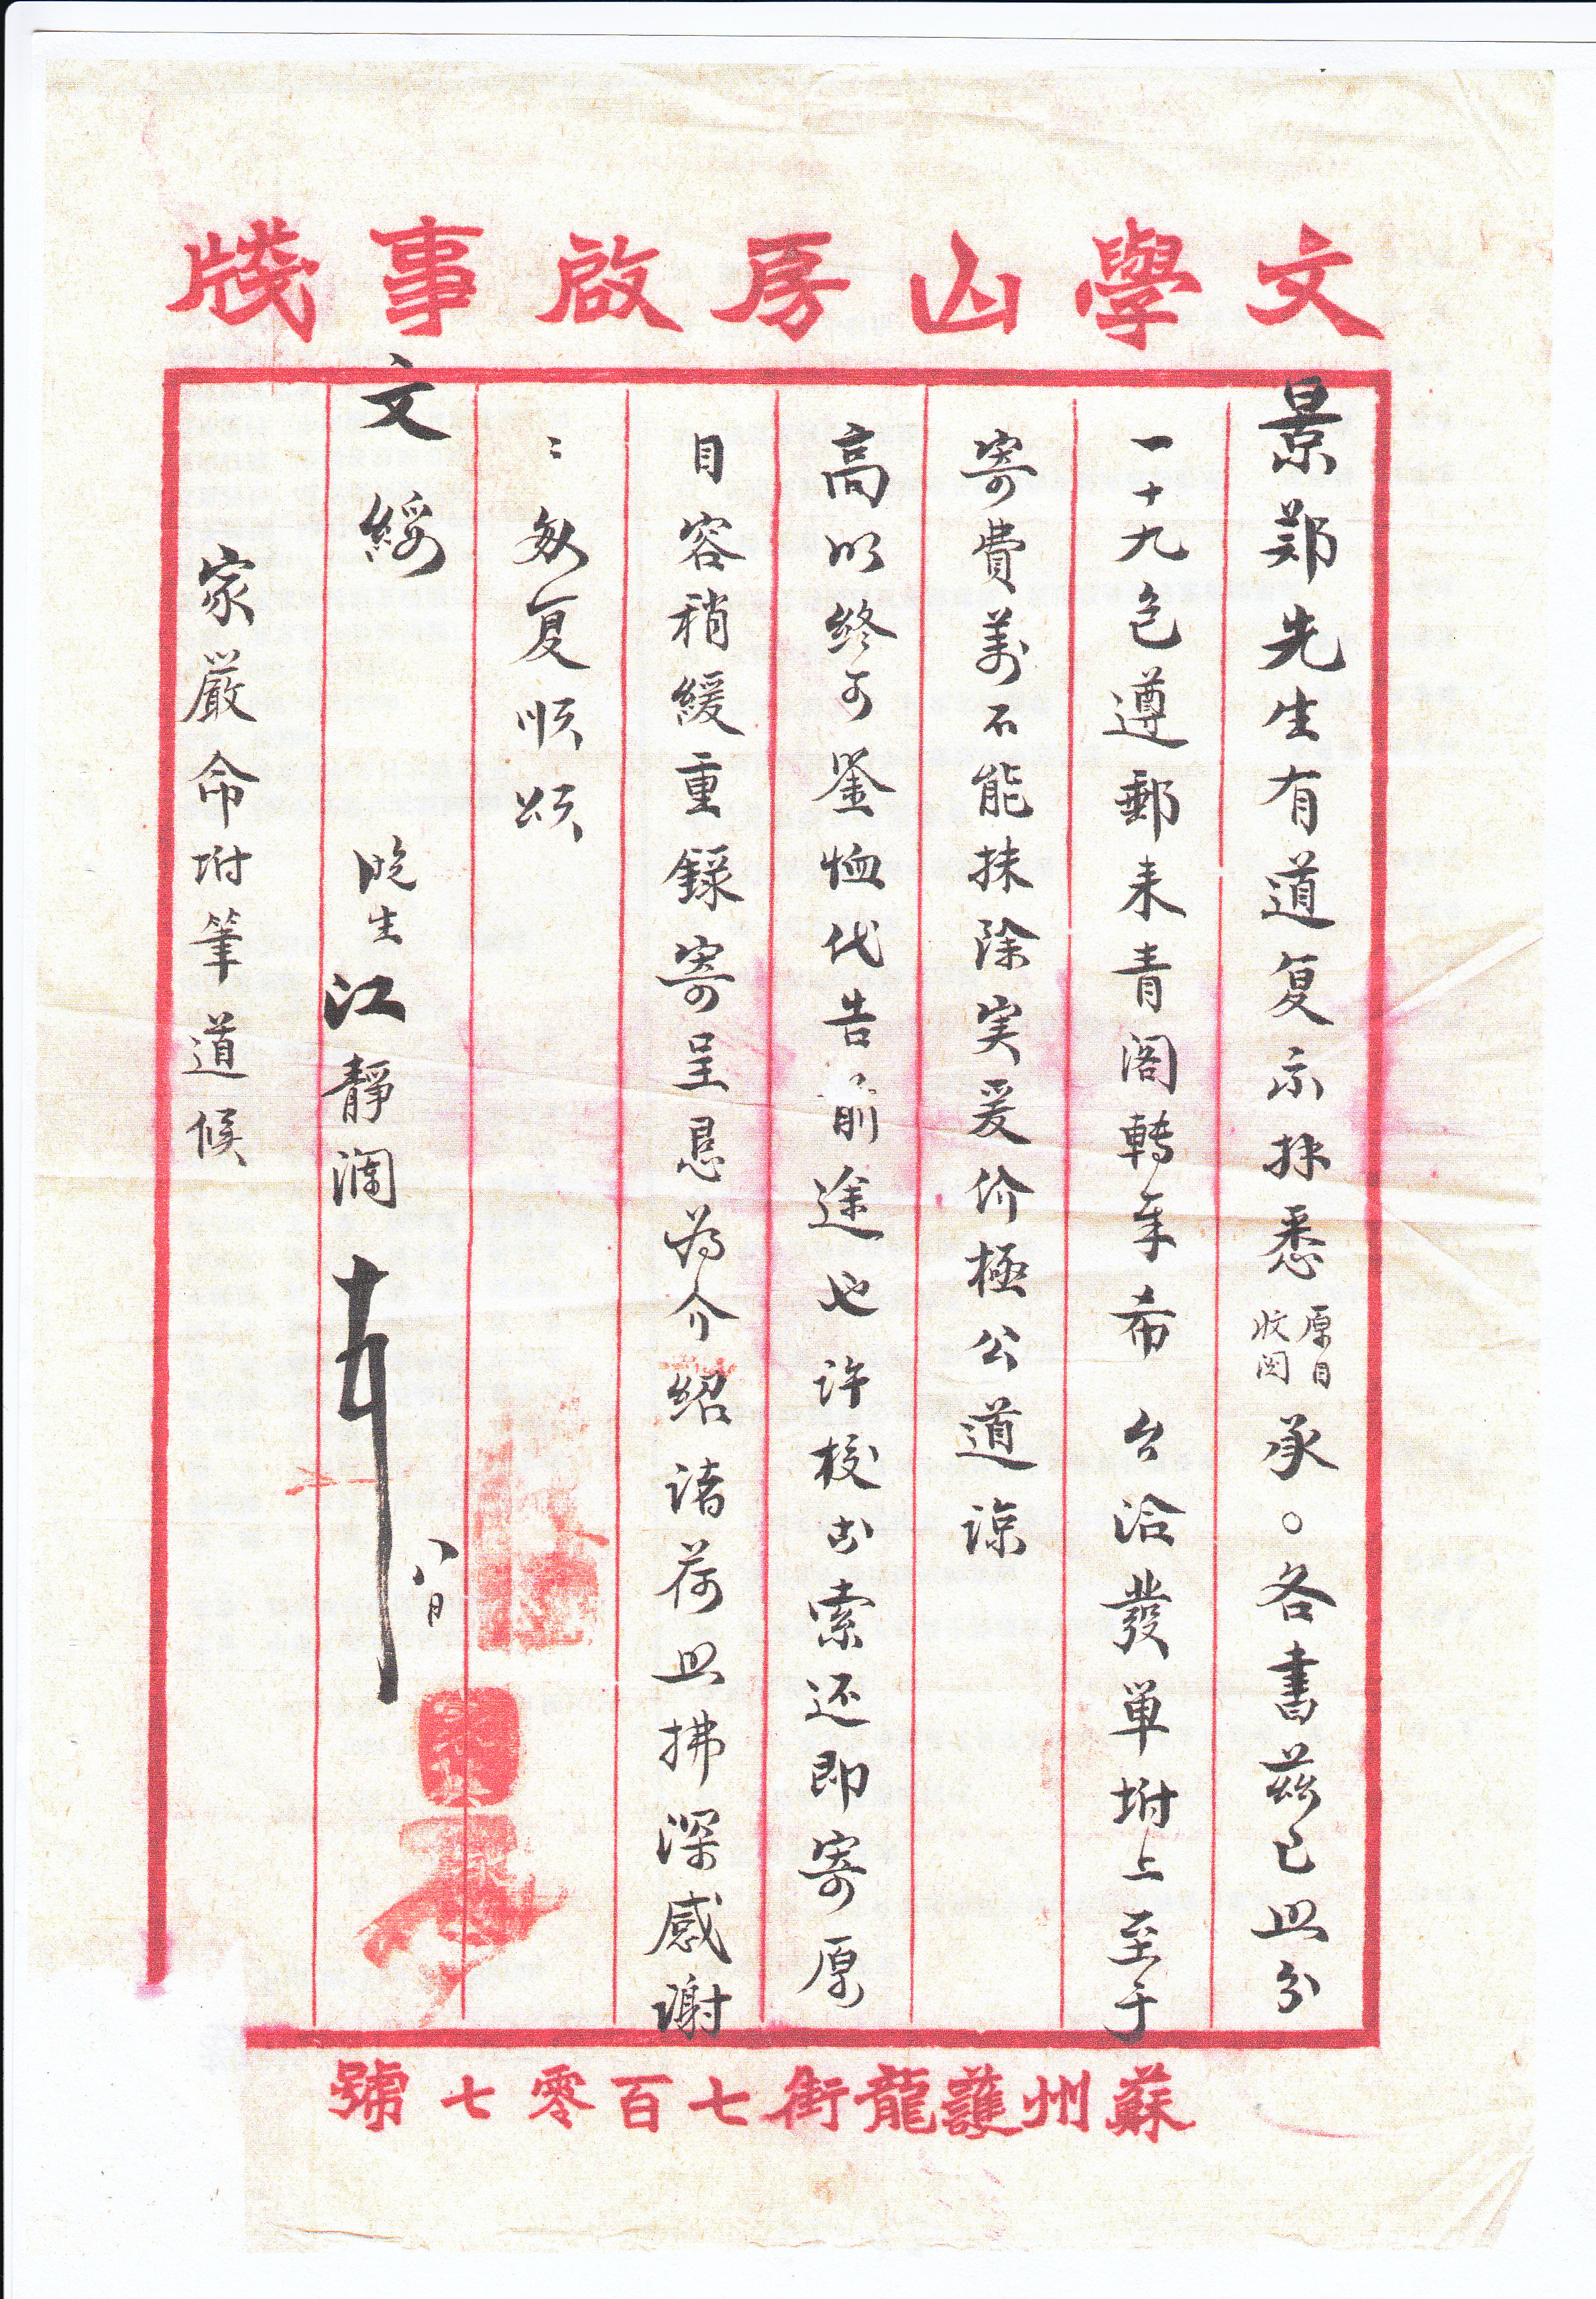 文學山房啟事牋
景鄭先生有道复示抹悉原目收閱承○各書茲已照分
一十九包遵郵来青閣轉奉希 台洽發单坿上至于
寄費萬不能抹除実爰价極公道諒
高明終可鉴恤代告前途也许校出索还即寄原
目容稍緩重錄寄呈恳為介紹諸荷照拂深感謝
〻匆复顺颂
文綏
晚生江靜瀾
八月
家嚴命坿筆道候
蘇州護龍街七百零七號